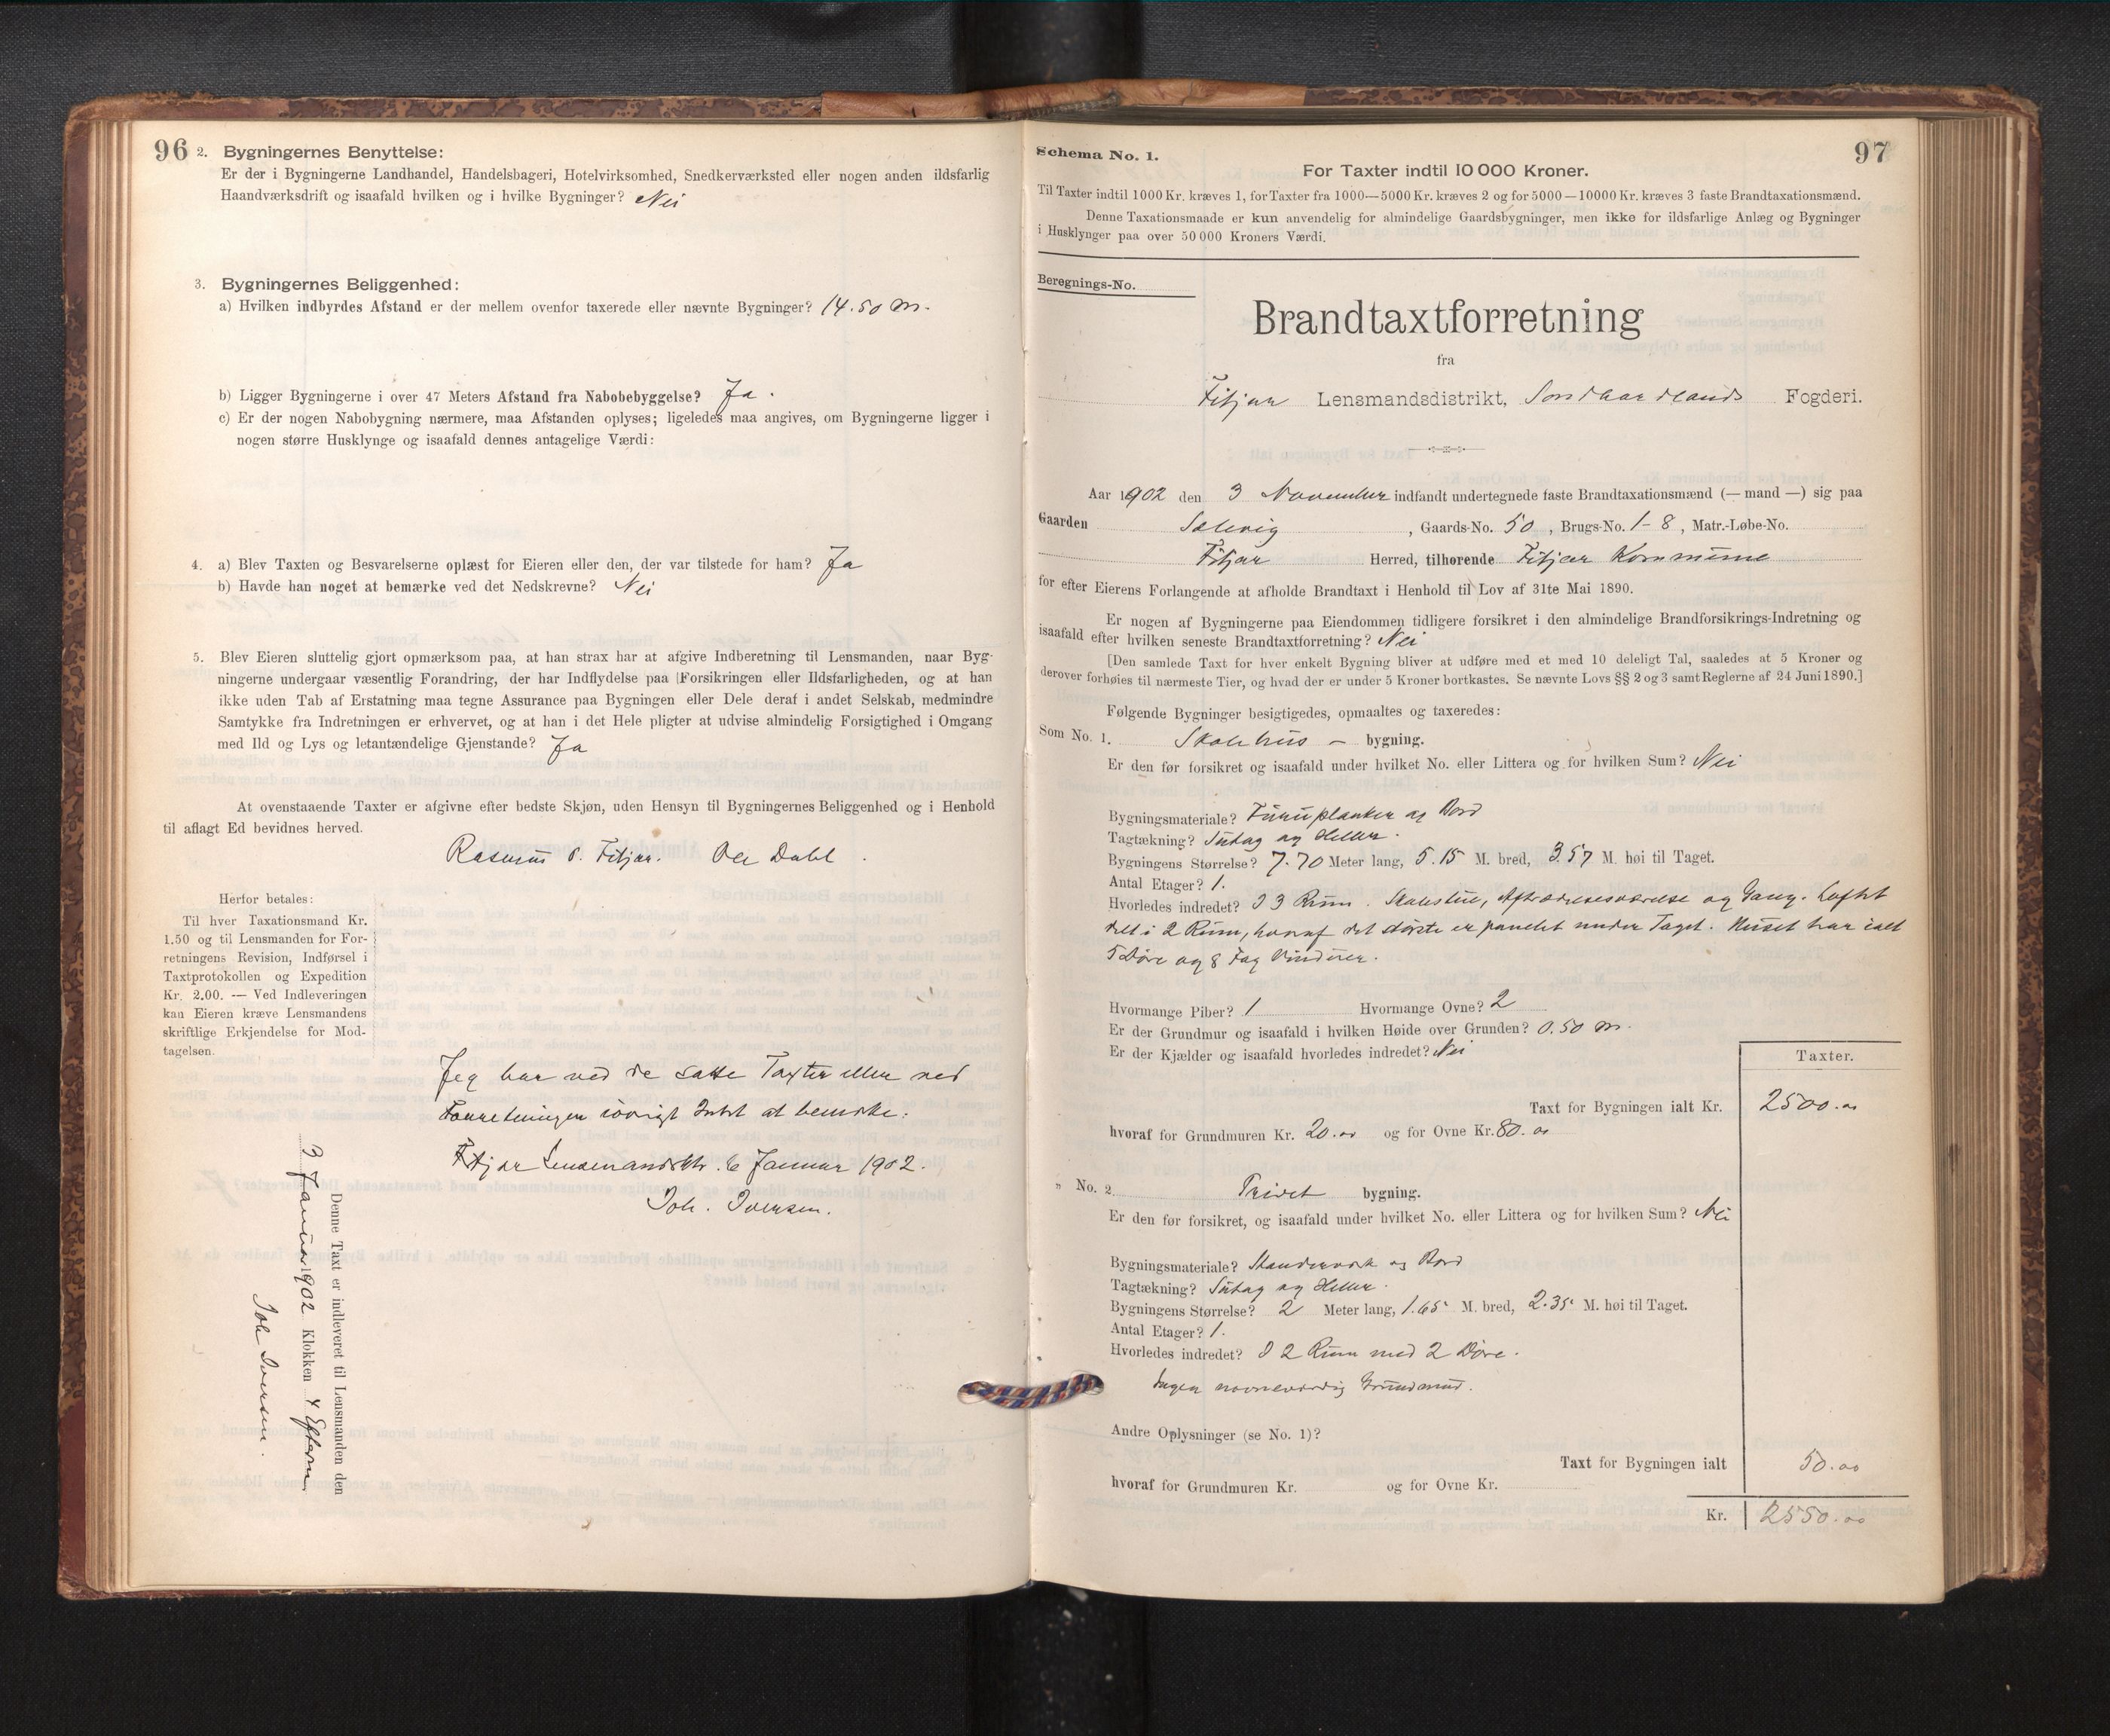 96
2. Bygningernes Benyttelse:
Er der i Bygningerne Landhandel, Handelsbageri, Hotelvirksomhed, Snedkerværksted eller nogen anden ildsfarlig
Haandværksdrift og isaafald hvilken og i hvilke Bygninger? Nei
3. Bygningernes Beliggenhed:
a) Hvilken indbyrdes Afstand er der mellem ovenfor taxerede eller nævnte Bygninger? 14.50 m.
b) Ligger Bygningerne i over 47 Meters Afstand fra Nabobebyggelse? Ja.
c) Er der nogen Nabobygning nærmere, maa Afstanden oplyses; ligeledes maa angives, om Bygningerne ligger i
nogen større Husklynge og isaafald dennes antagelige Værdi:
4. a) Blev Taxten og Besvarelserne oplæst for Eieren eller den, der var tilstede for ham? Ja
b) Havde han noget at bemærke ved det Nedskrevne? Nei
5. Blev Eieren sluttelig gjort opmærksom paa, at han strax har at afgive Indberetning til Lensmanden, naar Byg-
ningerne undergaar væsentlig Forandring, der har Indflydelse paa Forsikringen eller Ildsfarligheden, og at han
ikke uden Tab af Erstatning maa tegne Assurance paa Bygningen eller Dele deraf i andet Selskab, medmindre
Samtykke fra Indretningen er erhvervet, og at han i det Hele pligter at udvise almindelig Forsigtighed i Omgang
med Ild og Lys og letantændelige Gjenstande? Ja
At ovenstaaende Taxter er afgivne efter bedste Skjøn, uden Hensyn til Bygningernes Beliggenhed og i Henhold
til aflagt Ed bevidnes herved.
Rasmus O. Fitjar. Ole Dahl.
Herfor betales:
Til hver Taxationsmand Kr.
1.50 og til Lensmanden for For-
retningens Revision, Indførsel i
Taxtprotokollen og Expedition
Kr. 2.00. — Ved Indleveringen
kan Eieren kræve Lensmandens
skriftlige Erkjendelse for Mod-
tagelsen.
Jeg har ved de satte Taxter eller ved
Forretningen iøvrigt Intet at bemærke.
Fitjar Lensmandsktr. 6 Januar 1902.
Joh. Iversen.
Denne Taxt er indleveret til Lensmanden den
3 Januar 1902 Klokken 4 Efterm
Joh Iversen.
97
Schema No. 1.
For Taxter indtil 10 000 Kroner.
Til Taxter indtil 1000 Kr. kræves 1, for Taxter fra 1000—5000 Kr. kræves 2 og for 5000—10000 Kr. kræves 3 faste Brandtaxationsmænd.
Denne Taxationsmaade er kun anvendelig for almindelige Gaardsbygninger, men ikke for ildsfarlige Anlæg og Bygninger
i Husklynger paa over 50 000 Kroners Værdi.
Beregnings-No.
Brandtaxtforretning
fra
Fitjar Lensmandsdistrikt, Søndhordlands Fogderi.
Aar 1902 den 3 November indfandt undertegnede faste Brandtaxationsmænd (— mand —) sig paa
Gaarden Sælevig, Gaards-No. 50, Brugs-No. 1-8, Matr.-Løbe-No.
Fitjar Herred, tilhørende Fitjar Kommune
for efter Eierens Forlangende at afholde Brandtaxt i Henhold til Lov af 31te Mai 1890.
Er nogen af Bygningerne paa Eiendommen tidligere forsikret i den almindelige Brandforsikrings-Indretning og
isaafald efter hvilken seneste Brandtaxtforretning? Nei
[Den samlede Taxt for hver enkelt Bygning bliver at udføre med et med 10 deleligt Tal, saaledes at 5 Kroner og
derover forhøies til nærmeste Tier, og hvad der er under 5 Kroner bortkastes. Se nævnte Lovs §§ 2 og 3 samt Reglerne af 24 Juni 1890.]
Følgende Bygninger besigtigedes, opmaaltes og taxeredes:
Som No. 1. Skolehus - bygning.
Er den før forsikret og isaafald under hvilket No. eller Littera og for hvilken Sum? Nei
Bygningsmateriale? Furuplanker og Bord
Tagtækning? Sutag og Heller.
Bygningens Størrelse? 7.70 Meter lang, 5.15 M. bred, 3.57 M. høi til Taget.
Antal Etager? 1.
Hvorledes indredet? I 3 Rum. Skolestue, Aftrædelsesværelse og Gang. Loftet
delt i 2 Rum, hvoraf det største er panelet under Taget. Huset har ialt
5 Døre og 8 Fag Vinduer.
Hvormange Piber? 1 Hvormange Ovne? 2
Er der Grundmur og isaafald i hvilken Høide over Grunden? 0.50 m.
Er der Kjælder og isaafald hvorledes indredet? Nei
Taxter.
Taxt for Bygningen ialt Kr. 2500.00
hvoraf for Grundmuren Kr. 20.00 og for Ovne Kr. 80.00
" No. 2. Privet bygning.
Er den før forsikret, og isaafald under hvilket No. eller Littera og for hvilken Sum? Nei
Bygningsmateriale? Standerværk og Bord
Tagtækning? Sutag og Heller.
Bygningens Størrelse? 2 Meter lang, 1.65 M. bred, 2.35 M. høi til Taget.
Antal Etager? 1.
Hvorledes indredet? I 2 Rum med 2 Døre.
Ingen nævneværdig Grundmur.
Andre Oplysninger (se No. 1)?
Taxt for Bygningen ialt 50.00
hvoraf for Grundmuren Kr. og for Ovne Kr.
Kr. 2550.00